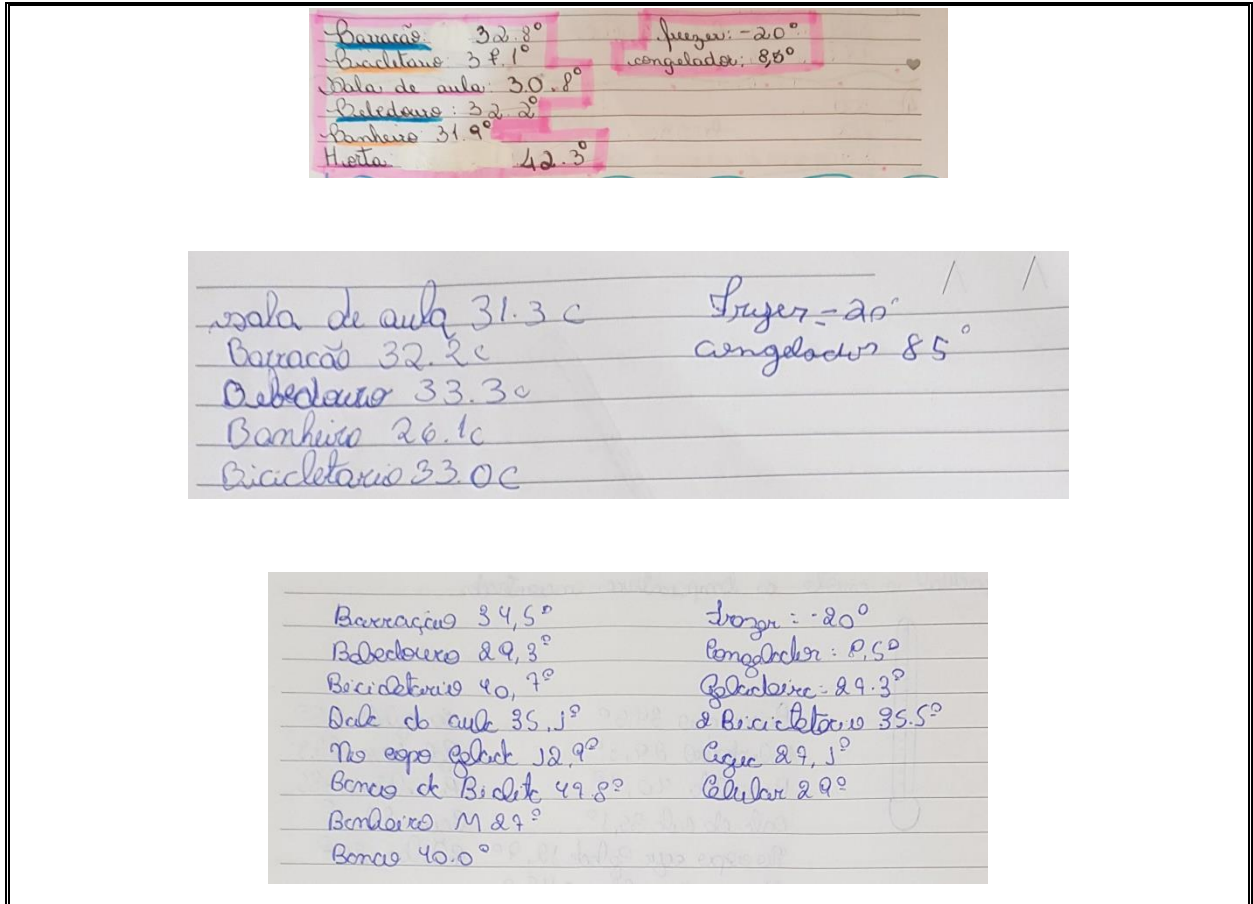 Barracão: 32.8°
Bicicletario: 37.1°
Sala de aula: 30.8°
Bebedouro: 32.2°
Banheiro 31.9°
Horta: 42.3°
freezer: -20°
congelador: 8,5°
sala de aula 31.3 c
Barracão 32.2c
Bebedouro 33.3c
Banheiro 26.1c
Bicicletario 33.0C
Frezer = -20°
Congelador 85°
Barração 34,5°
Bebedouro 29,3°
Bicicletario 40,7°
Sala do aula 35,1°
No copo gelad 12,9°
Banco de Biclet 49.8°
Banheiro M 27°
Banco 40.0°
frozer = -20°
Congelador: 8,5°
Geladeira = 29.3°
2 Bicicletario 35.5°
Agua 27,1°
Celular 29°